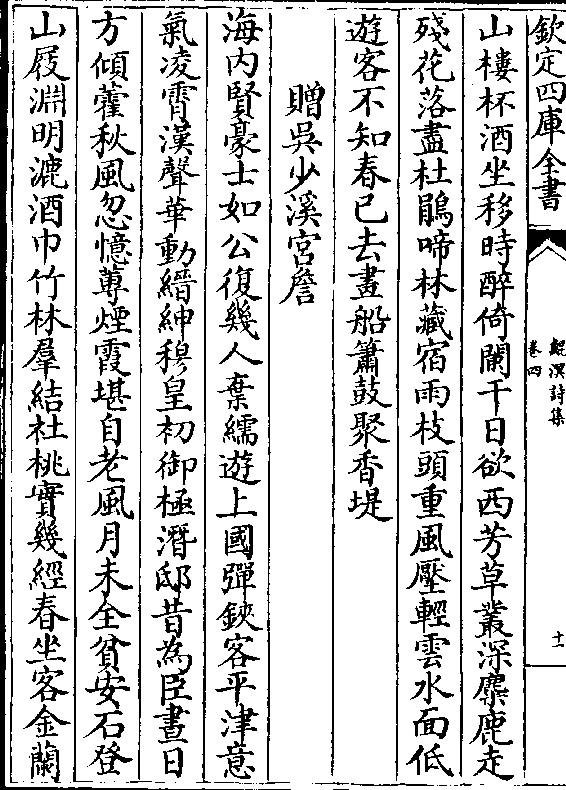 欽定四庫全書
鯤溟詩集
卷四
十一
山樓杯酒坐移時醉倚闌干日欲西芳草叢深麋鹿走
殘花落盡杜鵑啼林藏宿雨枝頭重風壓輕雲水面低
遊客不知春已去畫船簫鼓聚香堤
贈吳少溪宮詹
海內賢豪士如公復幾人棄繻遊上國彈鋏客平津意
氣凌霄漢聲華動縉紳穆皇初御極潛邸昔為臣晝日
方傾藿秋風忽憶蓴煙霞堪自老風月未全貧安石登
山屐淵明漉酒巾竹林羣結社桃實幾經春坐客金蘭